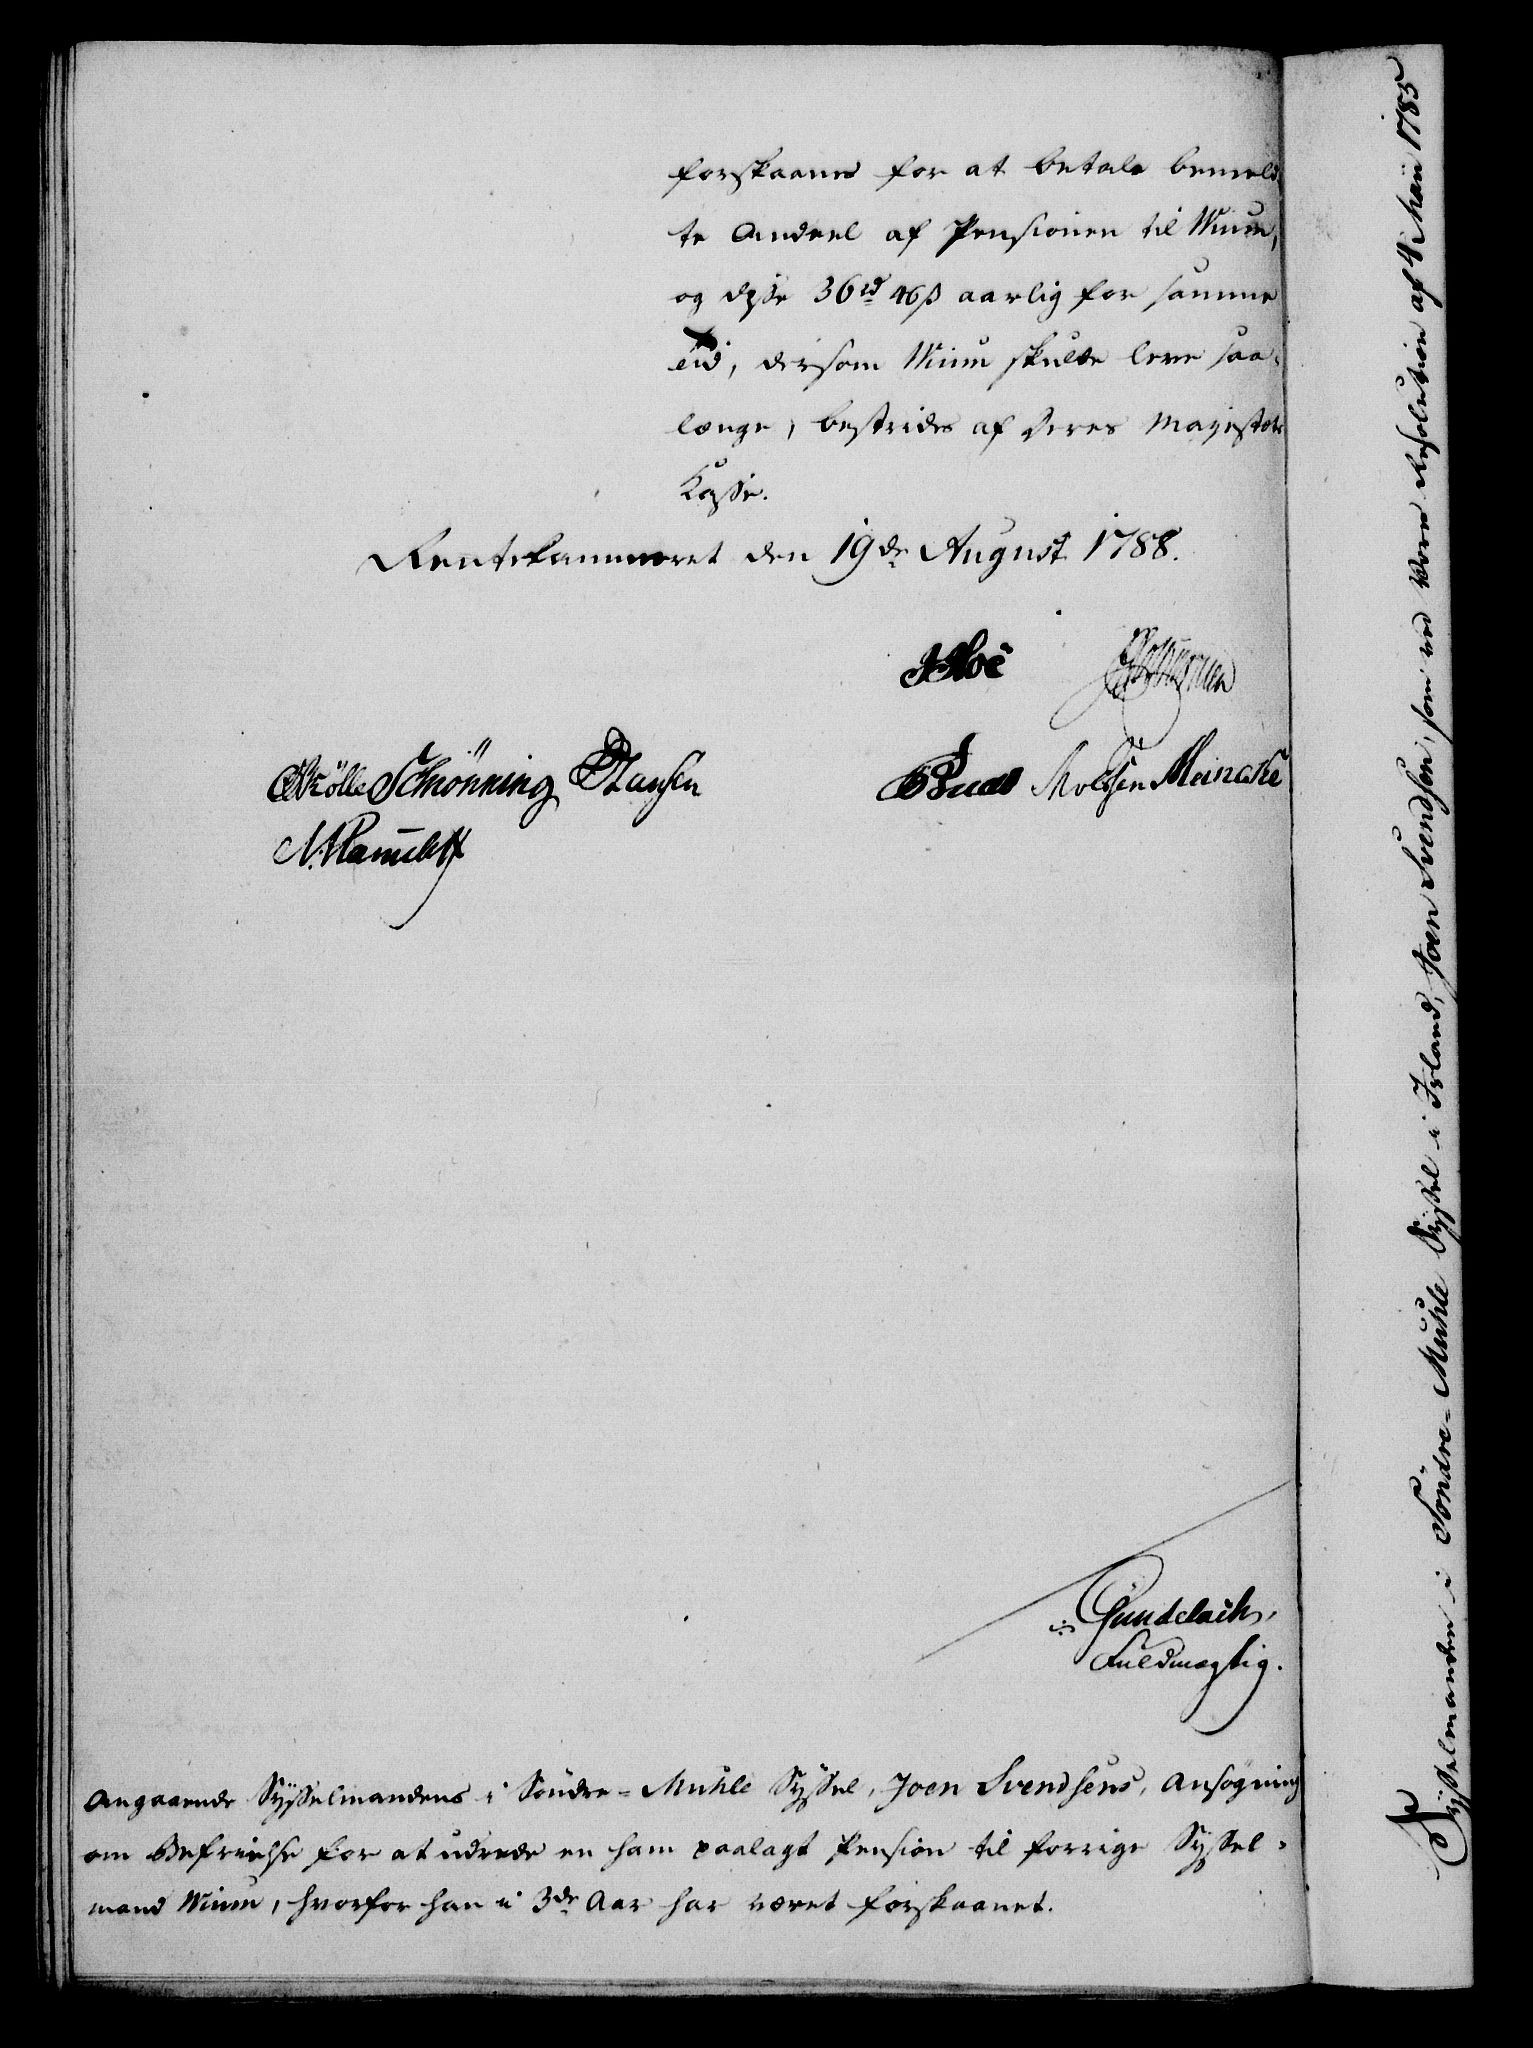 forskaanes for at betale bemeld
te Andeel af Pensionen til Wium,
og disse 36 rd 46 ß aarlig for samme
Tid, dersom Wium skulde leve saa-
længe, bestrides af Deres Majestæts
Kasse.
Rentekammeret den 19de August 1788.
Schiönning Hansen
Meincke
Gundelach,
Fuldmægtig.
Angaaende Sysselmandens i Söndre-Muhle Syssel, Joen Svendsens, Ansøgning
om Befrielse for at udrede en ham paalagt Pension til forrige Syssel-
mand Wium, hvorfor han i 3de Aar har været forskaanet.
Sysselmanden i Söndre-Muhle Syssel i Island, Joen Svendsen, som ved Vores Resolution af 4 Maii 1785